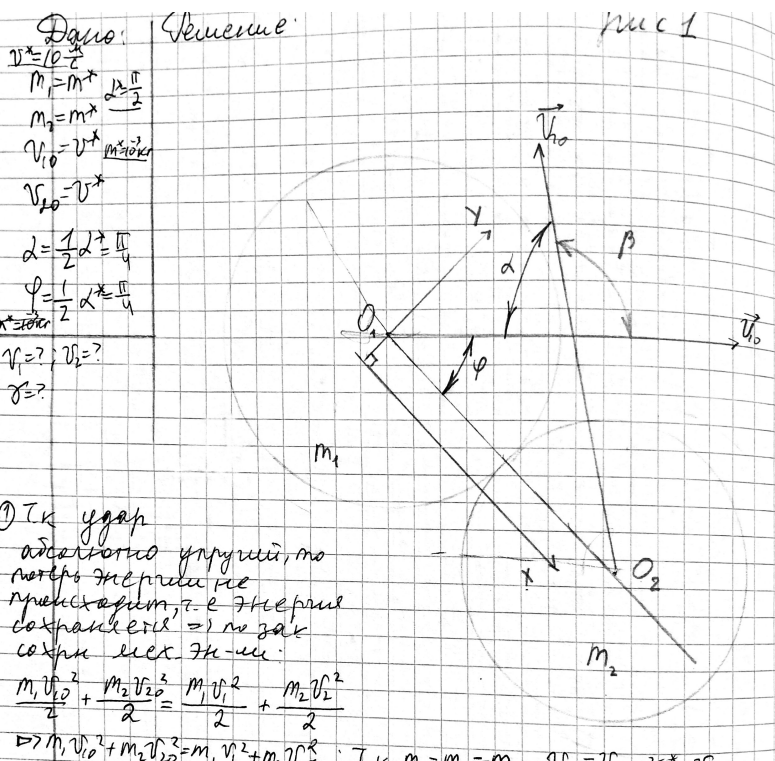 Дано:
Решение:
рис 1
v*=10 м/с
m₁=m*
α*=π/2
m₂=m*
v₁₀=v*
m*=10⁻³кг
v₂₀=v*
α=1/2 α*=π/4
φ=1/2 α*=π/4
m*=10⁻³кг
v₁=?; v₂=?
γ=?
Y
α
β
O₁
φ
m₁
X
O₂
m₂
① Т.к удар
абсолютно упругий, то
потерь энергии не
происходит, т.е энергия
сохраняется => по зак
сохрн мех. эн-ии:
m₁v₁₀²/2 + m₂v₂₀²/2 = m₁v₁²/2 + m₂v₂²/2
=> m₁v₁₀²+m₂v₂₀²=m₁v₁²+m₂v₂²; Т.к m₁=m₂=m